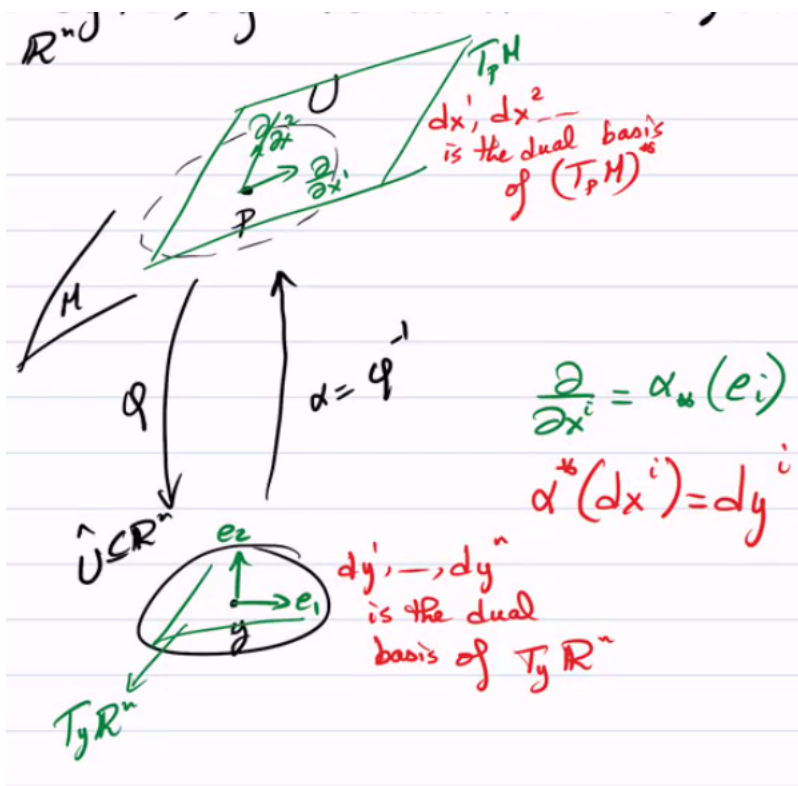 ℝⁿ
T_pM
U
dx¹, dx² ---
is the dual basis
of (T_pM)*
∂/∂x²
∂/∂x¹
P
M
φ
α = φ⁻¹
∂/∂xⁱ = α_*(eᵢ)
α*(dxⁱ) = dyⁱ
Û ⊆ ℝⁿ
e₂
e₁
y
dy¹, —, dyⁿ
is the dual
basis of T_y ℝⁿ
T_yℝⁿ